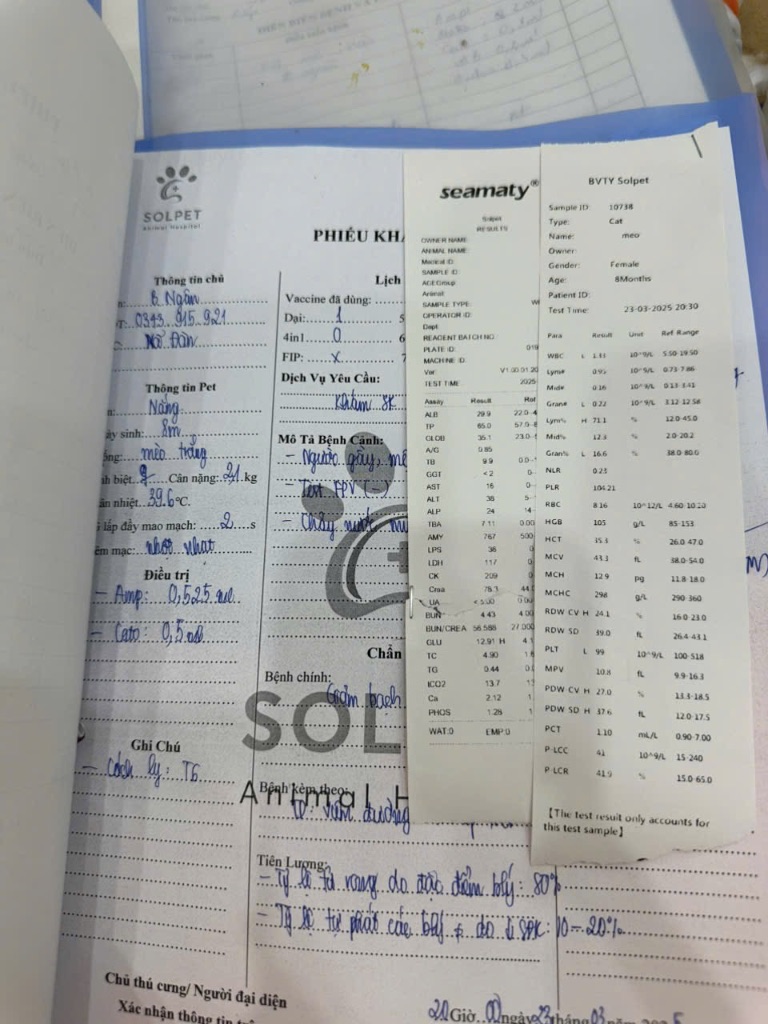 SOLPET
Animal Hospital
PHIẾU KHÁ
Thông tin chủ
B. Ngân
0343.915.921
Thông tin Pet
Nắng
ày sinh: 8m
mèo trắng
h biệt: Cân nặng: kg
ân nhiệt 39.6°C
lấp đầy mao mạch: 2 s
êm mạc: nhợt nhạt
Điều trị
- Amp: 0,525 ml
- Cato: 0,5ml
Ghi Chú
- Cách ly: TG
Chủ thú cưng/ Người đại diện
Xác nhận thông tin
Lịch
Vaccine đã dùng:
Dại: 1 5
4in1 0 6
FIP: x 7
Dịch Vụ Yêu Cầu:
Khám SK
Mô Tả Bệnh Cảnh:
- Người gầy, mệ
- Test FPV (-)
- Chảy nước mũ
Chẩn
Bệnh chính:
Giảm bạch
SOL
Animal H
Bệnh kèm theo:
Tiên Lượng:
- Tỷ lệ tử vong do đặc điểm bệnh lý: 80%
10-20%
20 Giờ 00 ngày 23 tháng 03 năm
seamaty®
Solpet
RESULTS
OWNER NAME:
ANIMAL NAME:
Medical ID:
SAMPLE ID:
AGE Group:
Animal:
SAMPLE TYPE:
OPERATOR ID:
Dept:
REAGENT BATCH NO:
PLATE ID: 019
MACHINE ID:
Ver: V1.00.01.20
TEST TIME 2025
Assay Result Ref
ALB 29.9 22.0-4
TP 65.0 57.0-8
GLOB 35.1 23.0-
A/G 0.85
TB 9.9 0.0-
GGT <2 0
AST 16 0
ALT 38 5-
ALP 24 14-
TBA 7.11 0.00
AMY 767 500
LPS 38 0
LDH 117 0
CK 209 0
Crea 78.1 44
UA <5.00 0.00
BUN 4.43 4.00
BUN/CREA 56.588 27.000
GLU 12.91 H 4.1
TC 4.90 1.8
TG 0.44 0.
tCO2 13.7 13
Ca 2.12 1
PHOS 1.28 1
WAT:0 EMP:0
BVTY Solpet
Sample ID: 10738
Type: Cat
Name: meo
Owner:
Gender: Female
Age: 8Months
Patient ID:
Test Time: 23-03-2025 20:30
Para Result Unit Ref Range
WBC L 10^9/L 5.50-19.50
Lym# 0.95 10^9/L 0.73-7.86
Mid# 0.16 10^9/L 0.13-3.41
Gran# L 0.22 10^9/L 3.12-12.58
Lym% H 71.1 % 12.0-45.0
Mid% 12.3 % 2.0-20.2
Gran% L 16.6 % 38.0-80.0
NLR 0.23
PLR 104.21
RBC 8.16 10^12/L 4.60-10.20
HGB 105 g/L 85-153
HCT 35.3 % 26.0-47.0
MCV 43.3 fL 38.0-54.0
MCH 12.9 pg 11.8-18.0
MCHC 298 g/L 290-360
RDW CV H 24.1 % 16.0-23.0
RDW SD 39.0 fL 26.4-43.1
PLT L 99 10^9/L 100-518
MPV 10.8 fL 9.9-16.3
PDW CV H 27.0 % 13.3-18.5
PDW SD H 37.6 fL 12.0-17.5
PCT 1.10 mL/L 0.90-7.00
P-LCC 41 10^9/L 15-240
P-LCR 41.9 % 15.0-65.0
【The test result only accounts for
this test sample】